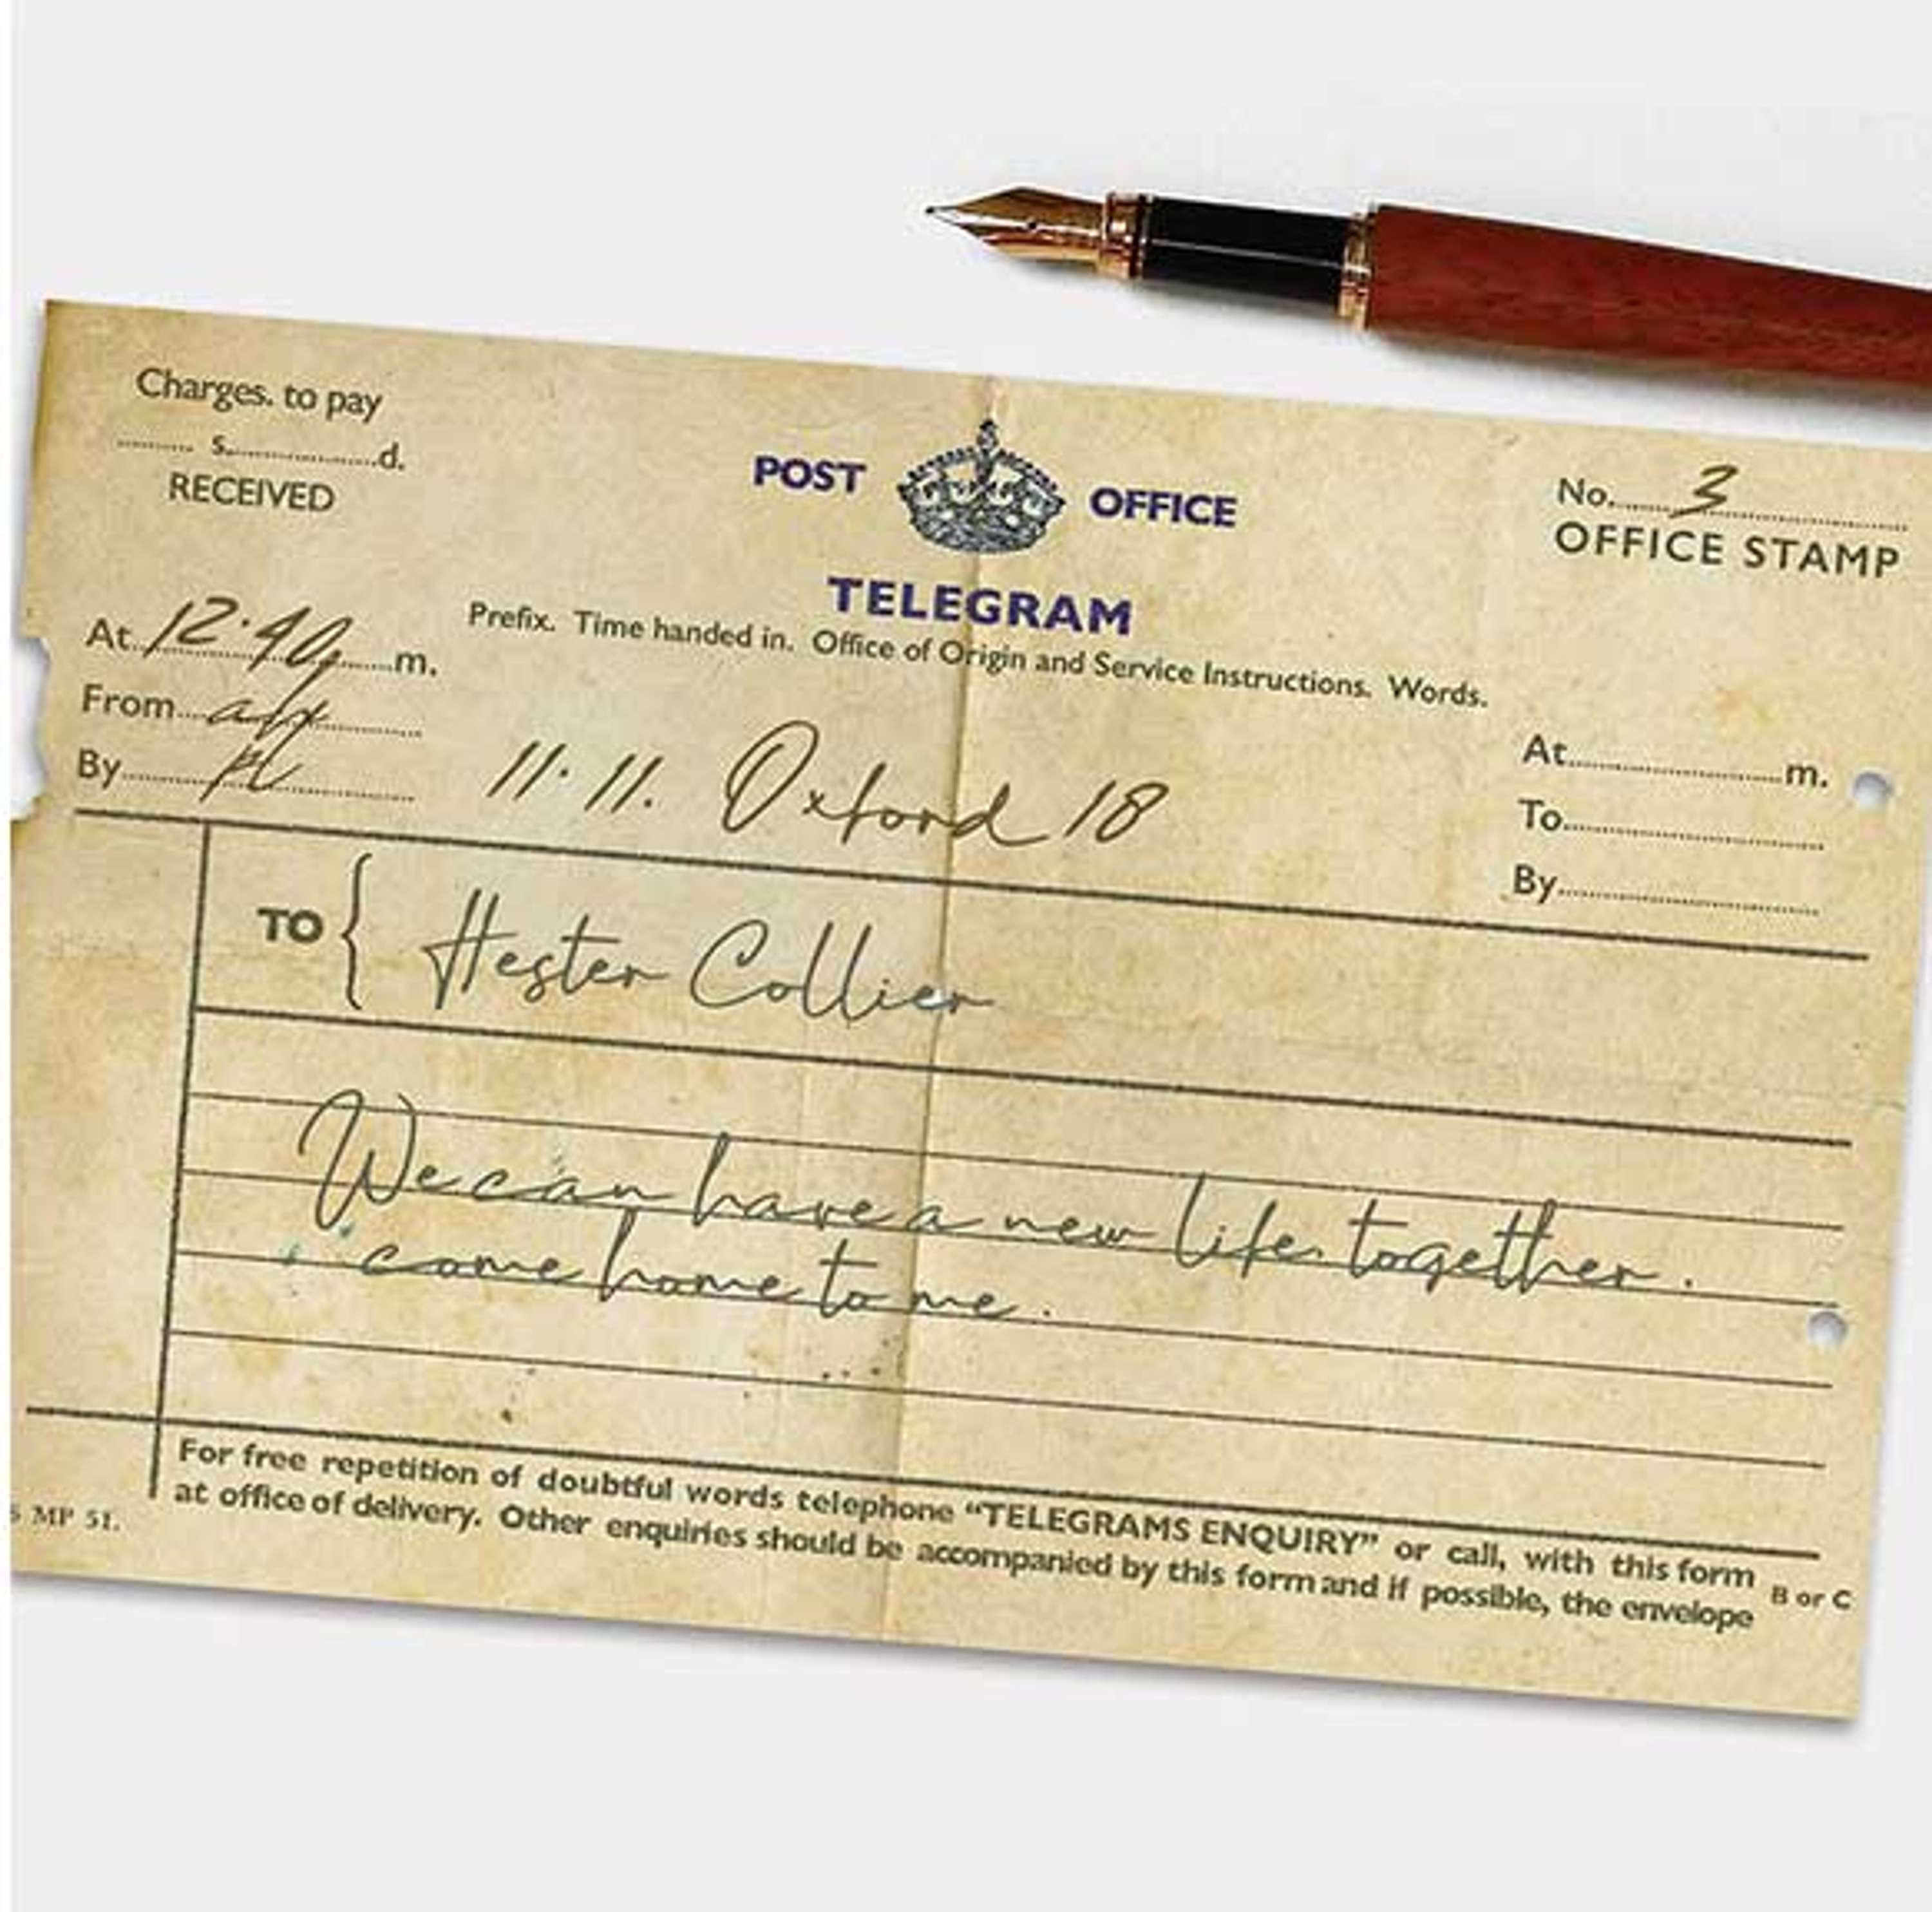 Charges. to pay
s. d.
RECEIVED
POST OFFICE
No. 3
OFFICE STAMP
TELEGRAM
Prefix. Time handed in. Office of Origin and Service Instructions. Words.
At 12.40 m.
From
By
11.11. Oxford 18
At m.
To
By
TO { Hester Collier
We can have a new life together.
come home to me.
For free repetition of doubtful words telephone “TELEGRAMS ENQUIRY” or call, with this form
at office of delivery. Other enquiries should be accompanied by this form and if possible, the envelope
B or C
MP 51.